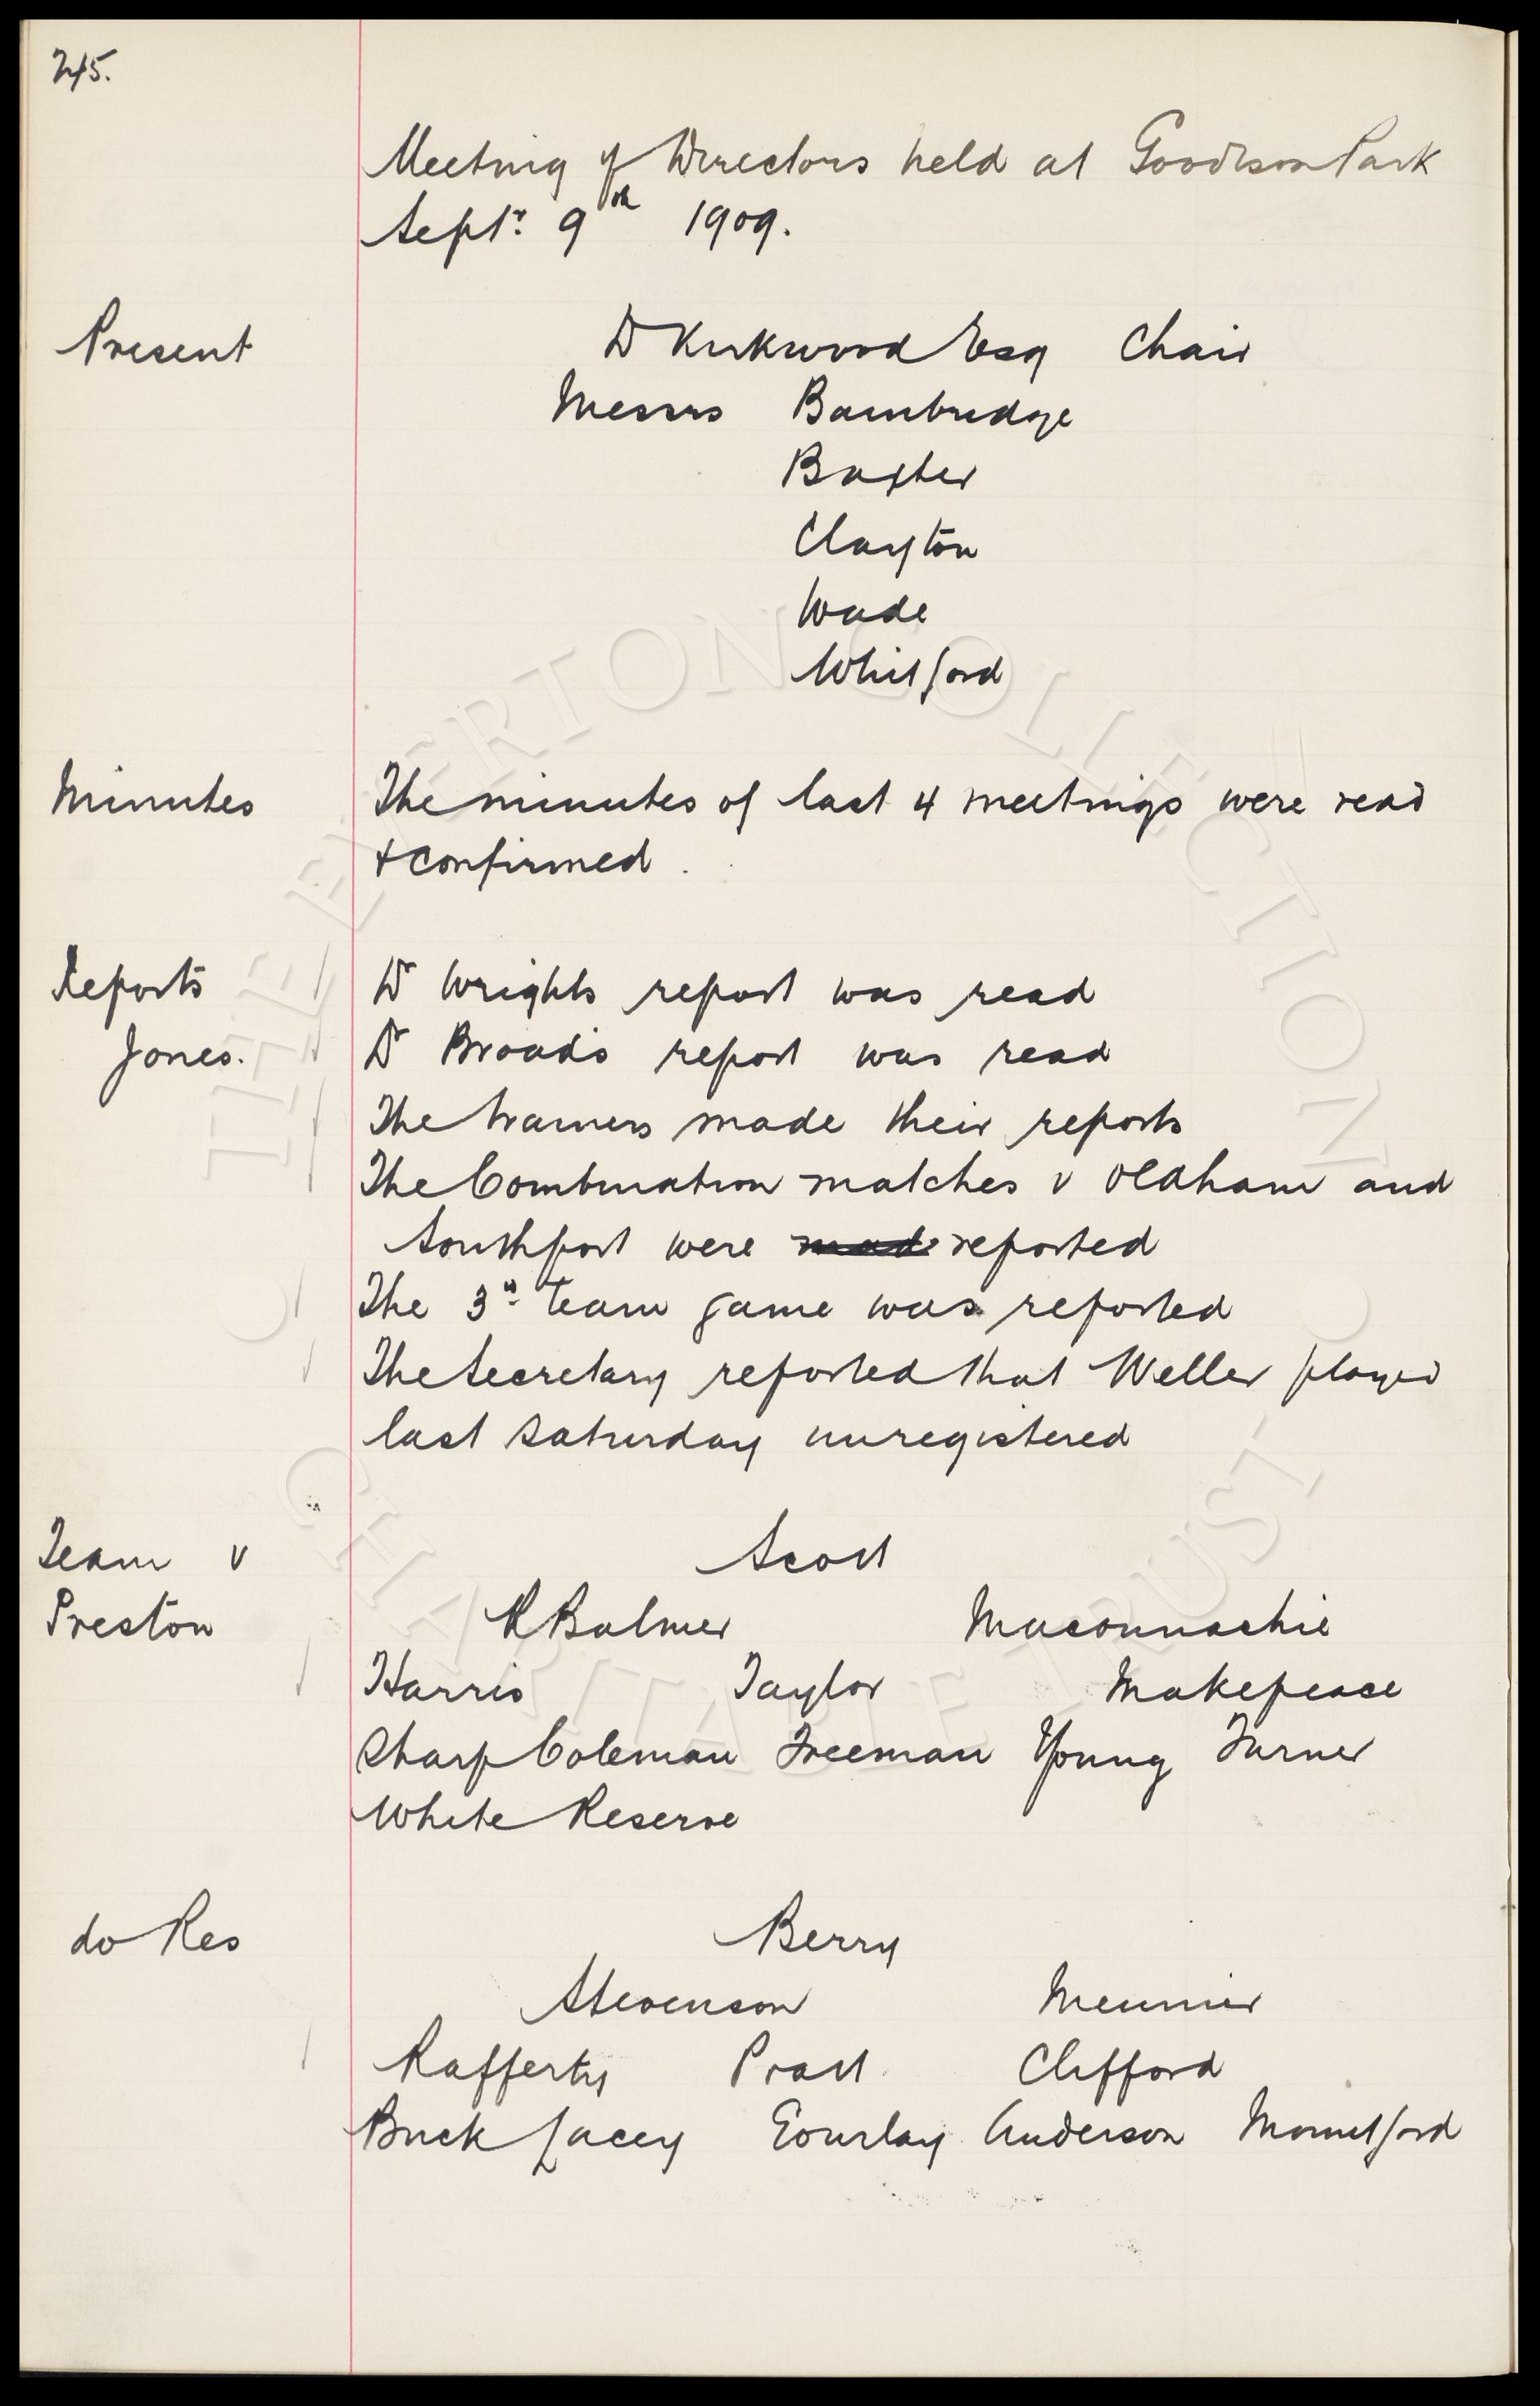 245.
Meeting of Directors held at Goodison Park
Septr. 9th 1909.
Present
D Kirkwood Esq Chair
Messrs Bainbridge
Baxter
Clayton
Wade
Whitford
Minutes
The minutes of last 4 meetings were read
& confirmed.
Reports
Dr Wrights report was read
Jones.
Dr Broads report was read
The trainers made their reports
The Combination matches v Oldham and
Southport were made reported
The 3rd team game was reported
The Secretary reported that Weller played
last Saturday unregistered
Team v
Scott
Preston
R Balmer Maconnachie
Harris Taylor Makepeace
Sharp Coleman Freeman Young Turner
White Reserve
do Res
Berry
Stevenson Meunier
Rafferty Pratt Clifford
Buck Lacey Gourlay Anderson Mountford
THE EVERTON COLLECTION
CHARITABLE TRUST